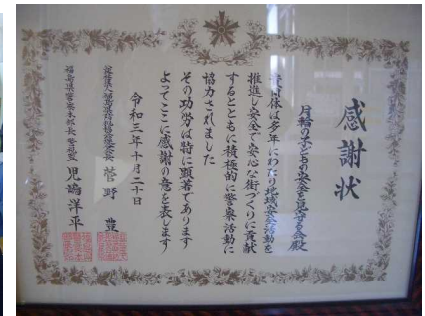 感謝状
月輪の子どもの安全を見守る会殿
貴団体は多年にわたり地域安全活動を
推進し安全で安心な街づくりに貢献
するとともに積極的に警察活動に
協力されました
その功労は特に顕著であります
よってここに感謝の意を表します
令和三年十月二十日
菅野 豊
福島県警察本部長 警視監 児嶋洋平